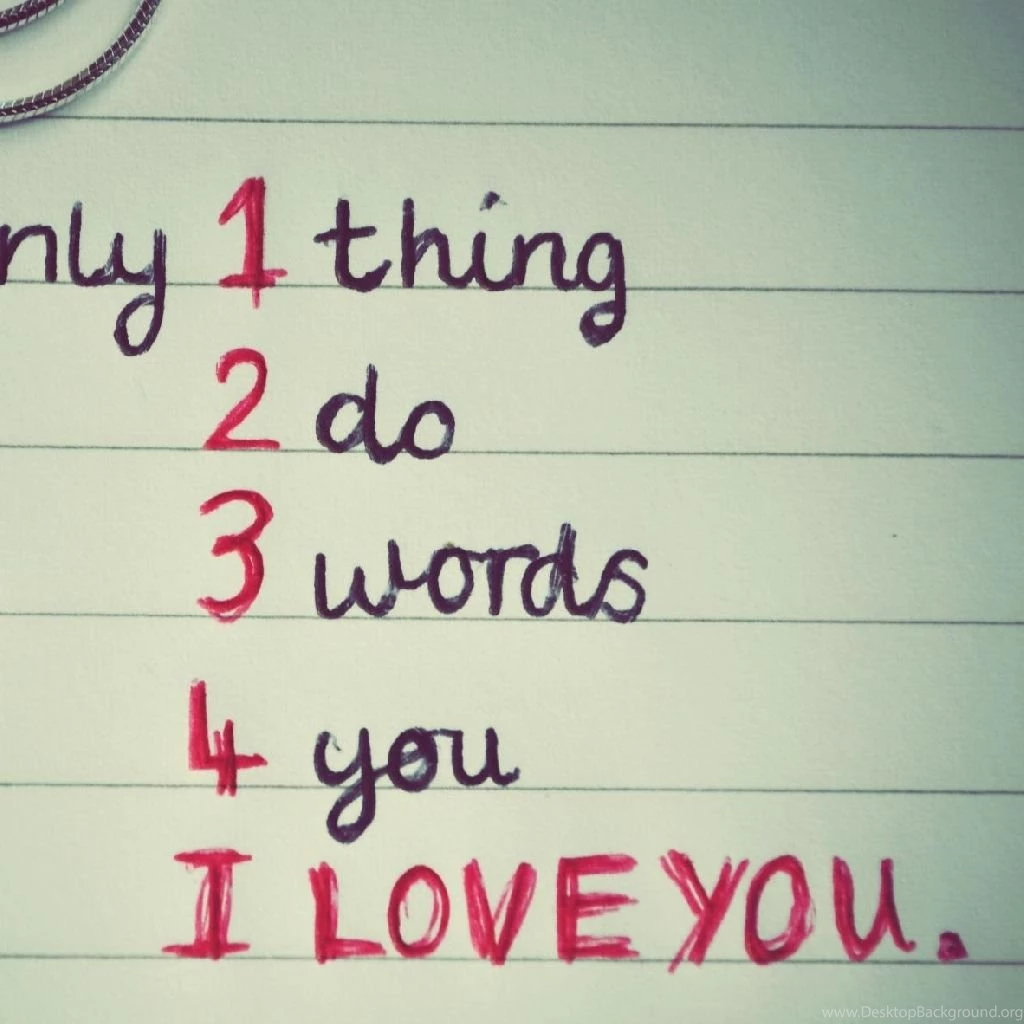 nly 1 thing
2 do
3 words
4 you
I LOVE YOU.
www.DesktopBackground.org